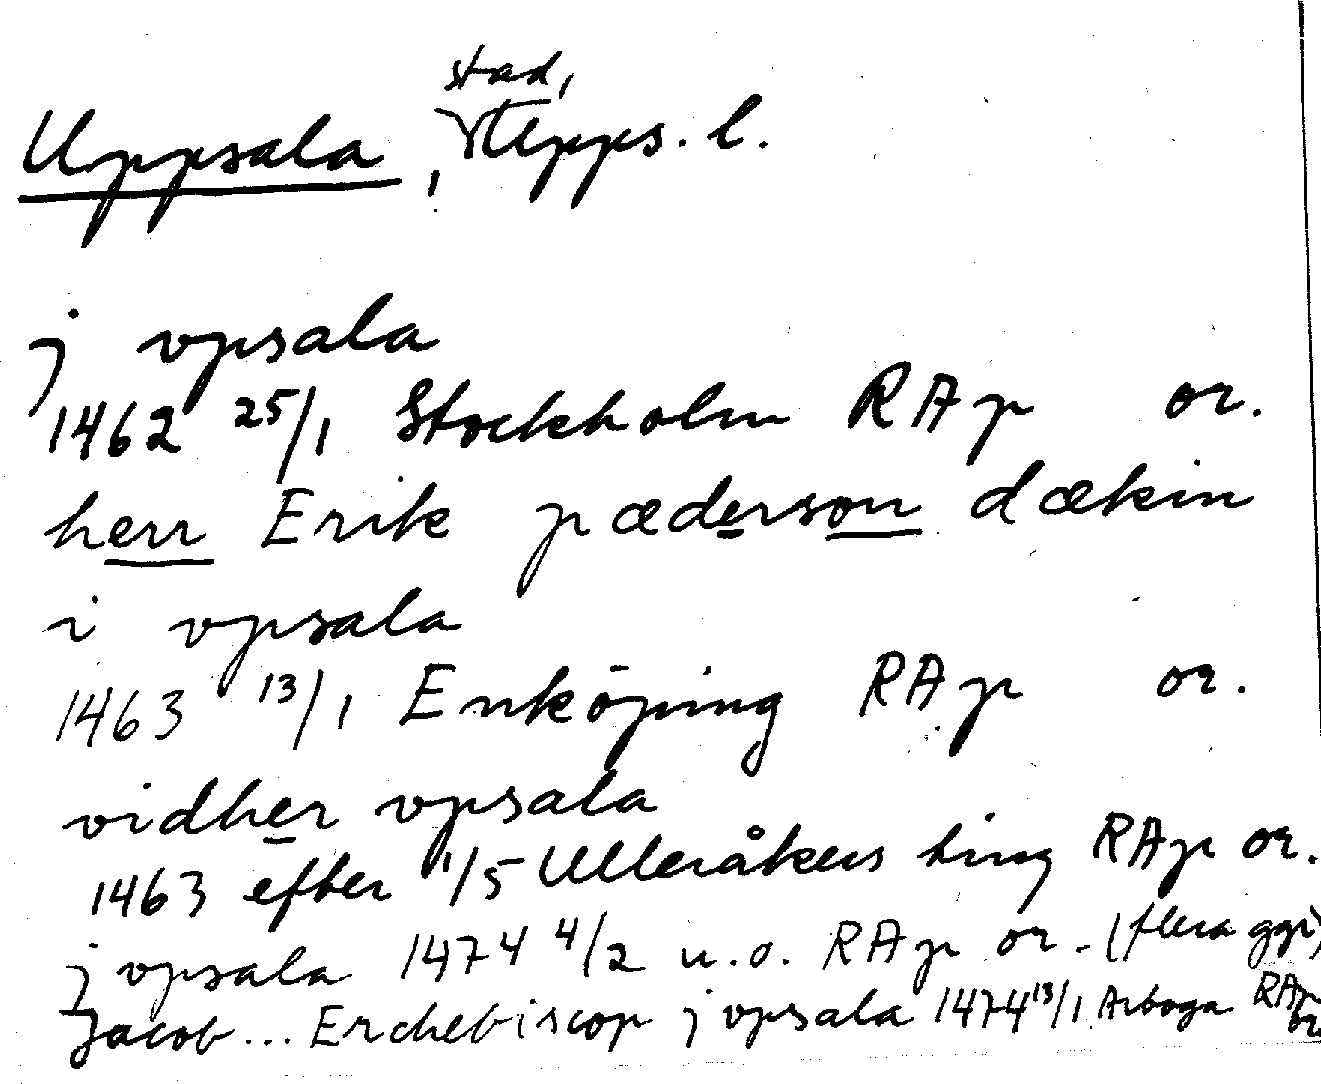 Uppsala, stad, Upps. l.
j vpsala
1462 25/1 Stockholm RAp or.
herr Erik pæderson dækin
i vpsala
1463 13/1 Enköping RAp or.
vidher vpsala
1463 efter 1/5 Ulleråkers ting RAp or.
j vpsala 1474 4/2 u.o. RAp or. (flera ggr)
Jacob... Erchebiscop j vpsala 1474 13/1 Arboga RAp or